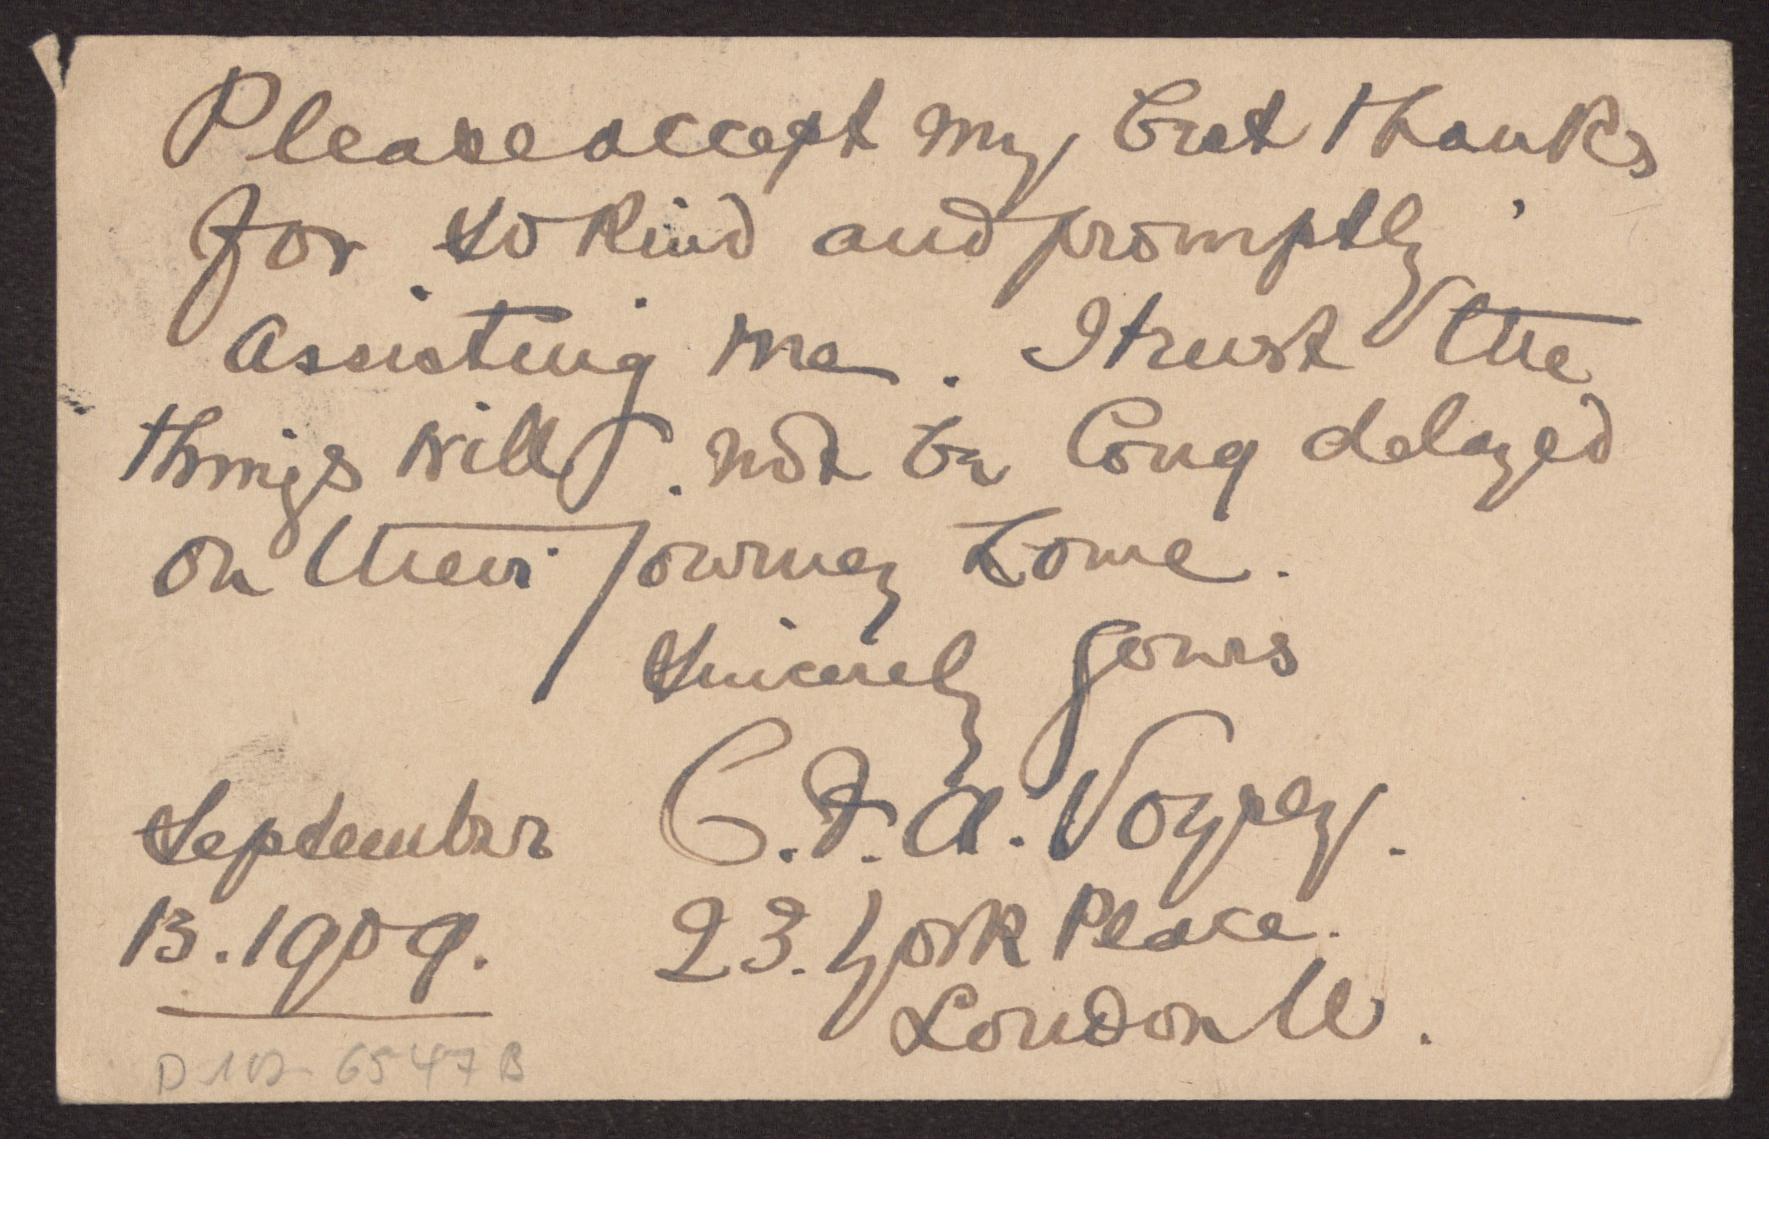 Please accept my best thanks
for so kind and promptly
assisting me. I trust the
things will not be long delayed
on their journey home.
Sincerely yours
C.F.A. Voysey.
September
13.1909.
23. York Place.
London W.
6547 B